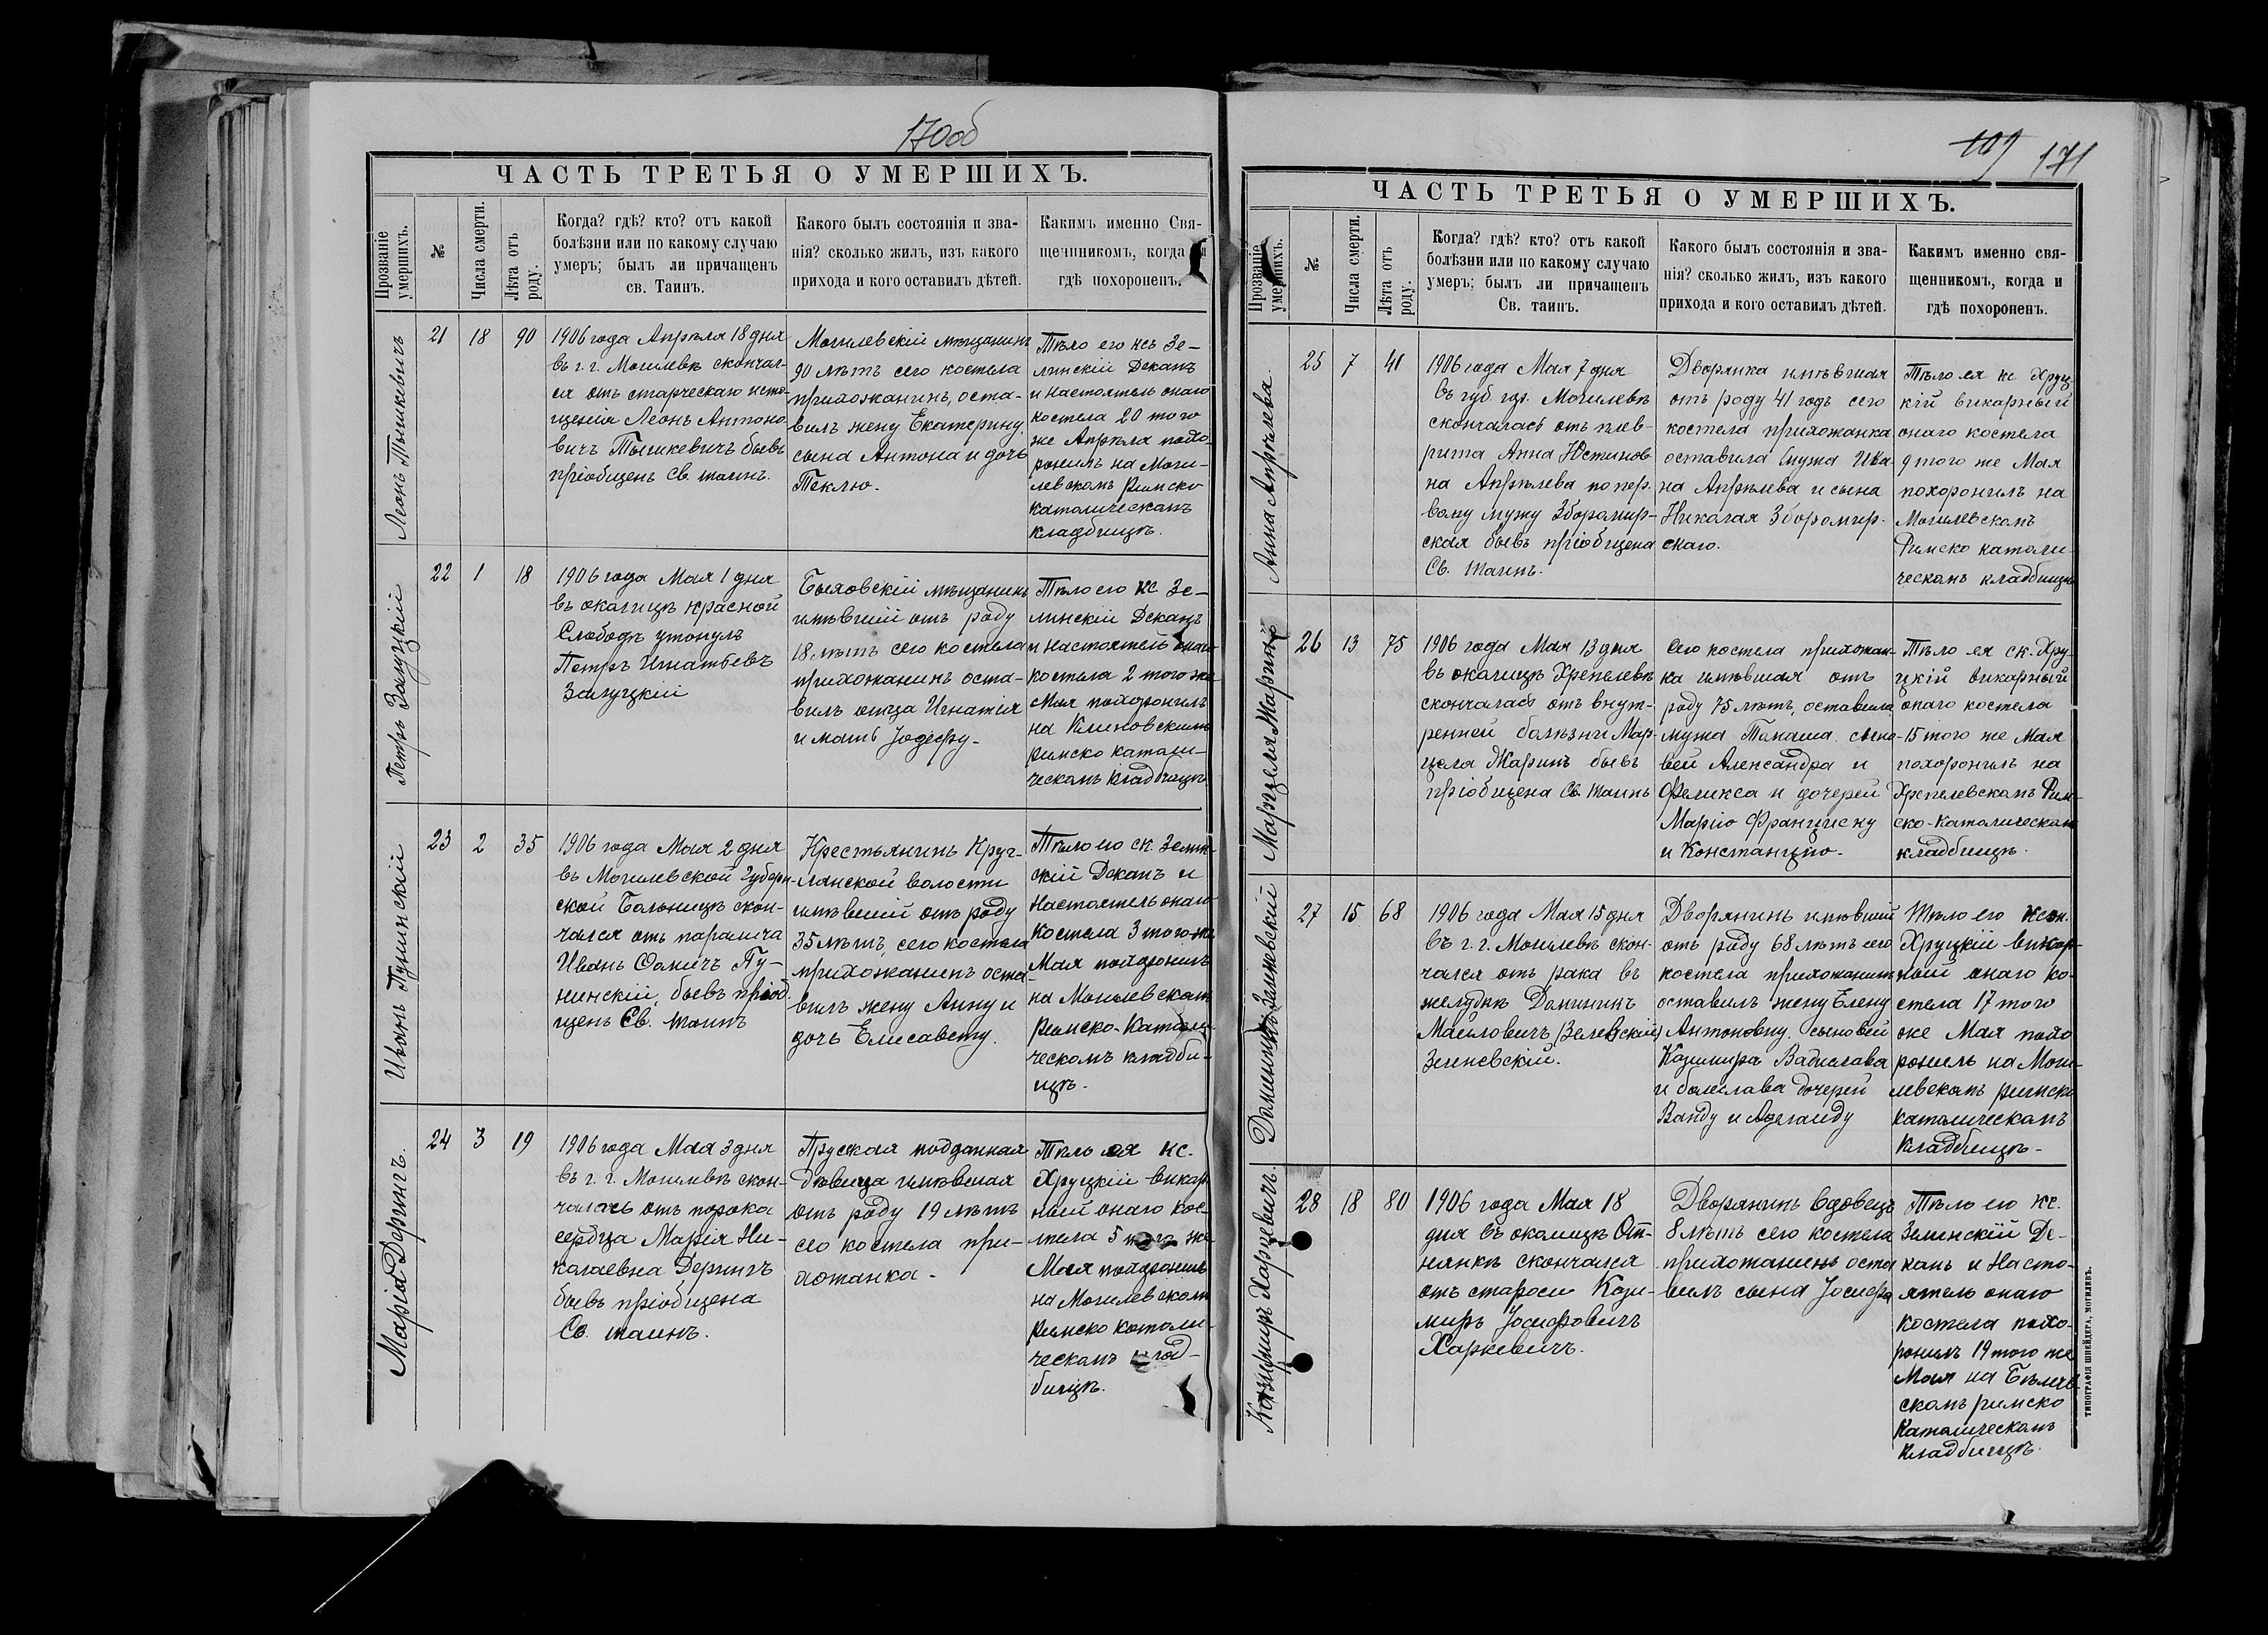 170об
ЧАСТЬ ТРЕТЬЯ О УМЕРШИХЪ.
Прозваніе умершихъ.
№
Числа смерти.
Лѣта отъ роду.
Когда? гдѣ? кто? отъ какой
болѣзни или по какому случаю
умеръ; былъ ли причащенъ
св. Таинъ.
Какого былъ состоянія и зва-
нія? сколько жилъ, изъ какого
прихода и кого оставилъ дѣтей.
Какимъ именно Свя-
щенникомъ, когда и
гдѣ похороненъ.
Леонъ Тышкевичъ
21
18
90
1906 года Апрѣля 18 дня
въ г. г. Могилевѣ скончал-
ся отъ старческаго исто-
щенія Леонъ Антоно-
вичъ Тышкевичъ бывъ
пріобщенъ Св. таинъ.
Могилевскій мѣщанинъ
90 лѣтъ сего костела
прихожанинъ, оста-
вилъ жену Екатерину,
сына Антона и дочь
Теклю.
Тѣло его ксъ Зе-
линскій Деканъ
и Настоятель онаго
костела 20 того
же Апрѣля похо-
ронилъ на Моги-
левскомъ римско
католическомъ
кладбищѣ.
Петръ Залуцкій
22
1
18
1906 года Мая 1 дня
въ околицѣ Красной
Слободѣ утонулъ
Петръ Игнатьевъ
Залуцкій
Быховскій мѣщанинъ
имѣвшій отъ роду
18 лѣтъ сего костела
прихожанинъ оста-
вилъ отца Игнатія
и мать Іозефу-
Тѣло его кс Зе-
линскій Деканъ
и Настоятель онаго
костела 2 того же
Мая похоронилъ
на
римско католи-
ческомъ кладбищѣ
Иванъ Пунинскій
23
2
35
1906 года Мая 2 дня
въ Могилевской Губерн-
ской Больницѣ скон-
чался отъ паралича
Иванъ Ѳомичъ Пу-
нинскій, бывъ пріоб-
щенъ Св. таинъ
Крестьянинъ Круг-
лянской волости
имѣвшій отъ роду
35 лѣтъ, сего костела
прихожанинъ оста-
вилъ жену Анну и
дочь Елисавету.
Тѣло его ск. Зелин-
скій Деканъ и
Настоятель онаго
Костела 3 того же
Мая похоронилъ
на Могилевскомъ
римско-Католи-
ческомъ кладби-
щѣ.
Марія Дерингъ.
24
3
19
1906 года Мая 3 дня
въ г. г. Могилевѣ скон-
чалась отъ порока
сердца Марія Ни-
колаевна Дерингъ
бывъ пріобщена
Св. таинъ.
Пруская подданная
Дѣвица имѣвшая
отъ роду 19 лѣтъ
сего костела при-
хожанка.
Тѣло ея кс.
Хруцкій викар-
ный онаго кос-
тела 5 того же
Мая похоронилъ
на Могилевскомъ
римско католи-
ческомъ клад-
бищѣ.
109 171
ЧАСТЬ ТРЕТЬЯ О УМЕРШИХЪ.
Прозваніе умершихъ.
№
Числа смерти.
Лѣта отъ роду.
Когда? гдѣ? кто? отъ какой
болѣзни или по какому случаю
умеръ; былъ ли причащенъ
Св. таинъ.
Какого былъ состоянія и зва-
нія? сколько жилъ, изъ какого
прихода и кого оставилъ дѣтей.
Какимъ именно свя-
щенникомъ, когда и
гдѣ похороненъ.
Анна Апрѣлева.
25
7
41
1906 года Мая 7 дня
въ губ. гор. Могилевѣ
скончалась отъ плев-
рита Анна Юстинов-
на Апрѣлева по пер-
вому мужу Збромир-
ская бывъ пріобщена
Св. таинъ.
Дворянка имѣвшая
отъ роду 41 годъ сего
костела прихожанка
оставила мужа Ива-
на Апрѣлева и сына
Николая Збромир-
скаго.
Тѣло ея кс Хруц-
кій викарный
онаго костела
9 того же Мая
похоронилъ на
Могилевскомъ
Римско католи-
ческомъ кладбищѣ
Марцеля Жаринъ
26
13
75
1906 года Мая 13 дня
въ околицѣ Хрепелевѣ
скончалась отъ внут-
ренней болѣзни Мар-
целя Жаринъ бывъ
пріобщена Св. таинъ
Сего костела прихожан-
ка имѣвшая отъ
роду 75 лѣтъ, оставила
мужа Томаша сыно-
вей Александра и
Феликса и дочерей
Марію Франциску
и Констанцію.
Тѣло ея ск. Хру-
цкій викарный
онаго костела
15 того же Мая
похоронилъ на
Хрепелевскомъ Рим-
ско-католическомъ
кладбищѣ.
Доминикъ Зеленевскій
27
15
68
1906 года Мая 15 дня
въ г. г. Могилевѣ скон-
чался отъ рака въ
желудкѣ Доминикъ
(Зеленскій)
Зеленевскій.
Дворянинъ имѣвшій
отъ роду 68 лѣтъ сего
костела прихожанинъ
оставилъ жену Елену
Антоновну сыновей
Казимира Вадислава
и болеслава дочерей
Ванду и Аделаиду
Тѣло его
Хруцкій викар-
ный онаго ко-
стела 17 того
же Мая похо
ронилъ на Моги-
левскомъ римско
католическомъ
Кладбищѣ-
Казимиръ Харкевичъ.
28
18
80
1906 года Мая 18
дня въ околицѣ
скончался
отъ старости Кази-
миръ Іосифовичъ
Харкевичъ.
Дворянинъ вдовецъ
8 лѣтъ сего костела
прихожанинъ оста
вилъ сына Іосифа
Тѣло его кс.
Зелинскій Де-
канъ и Насто-
ятель онаго
костела похо-
ронилъ 19 того же
Мая на
скомъ римско
католическомъ
кладбищѣ.
ТИПОГРАФІЯ ШНЕЙДЕРА, МОГИЛЕВЪ.